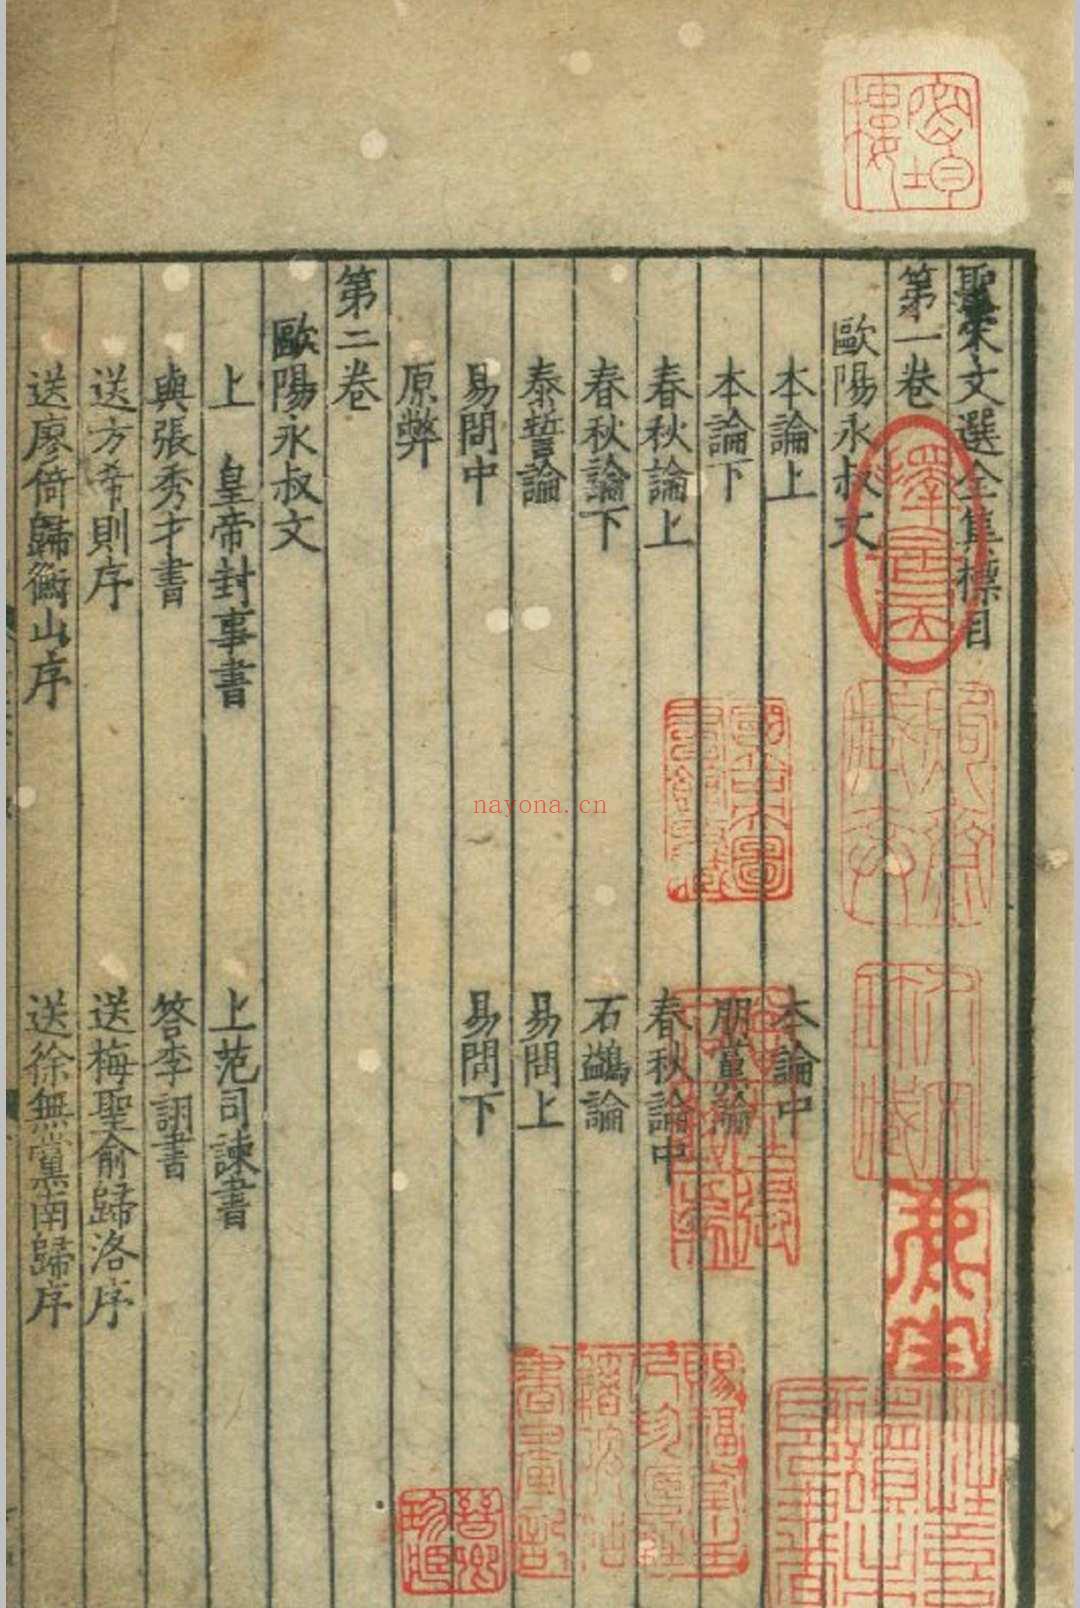 聖宋文選全集標目
第一卷
歐陽永叔文
本論上　本論中
本論下　朋黨論
春秋論上　春秋論中
春秋論下　石鷁論
泰誓論　易問上
易問中　易問下
原弊
第二卷
歐陽永叔文
上　皇帝封事書　上范司諫書
與張秀才書　答李詡書
送方希則序　送梅聖俞歸洛序
送廖倚歸衡山序　送徐無黨南歸序
擇是居
nayona.cn